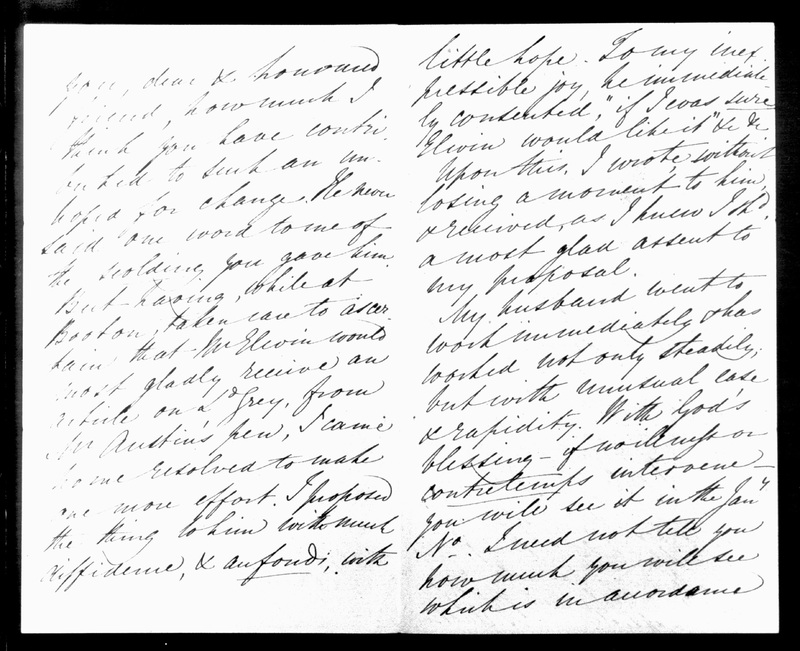 you, dear & honoured
friend, how much I
think you have contri-
buted to such an un-
hoped for change. He never
said one word to me of
the scolding you gave him.
But having, while at
Booton, taken care to ascer-
tain that Mr Elwin would
most gladly receive an
article on Ld Grey, from
Mr Austin's pen, I came
home resolved to make
one more effort. I proposed
the thing to him with much
diffidence, & au fond, with
little hope. To my inex-
pressible joy, he immediate-
ly consented, "if I was sure
Elwin would like it" &c &c.
Upon this, I wrote, without
losing a moment to him,
& received, as I knew I shd.
a most glad assent to
my proposal.
My husband went to
work immediately & has
worked not only steadily,
but with unusual ease
& rapidity. With God's
blessing – if no illness or
contretemps intervene –
you will see it in the Jany
No. I need not tell you
how much you will see
which is in accordance